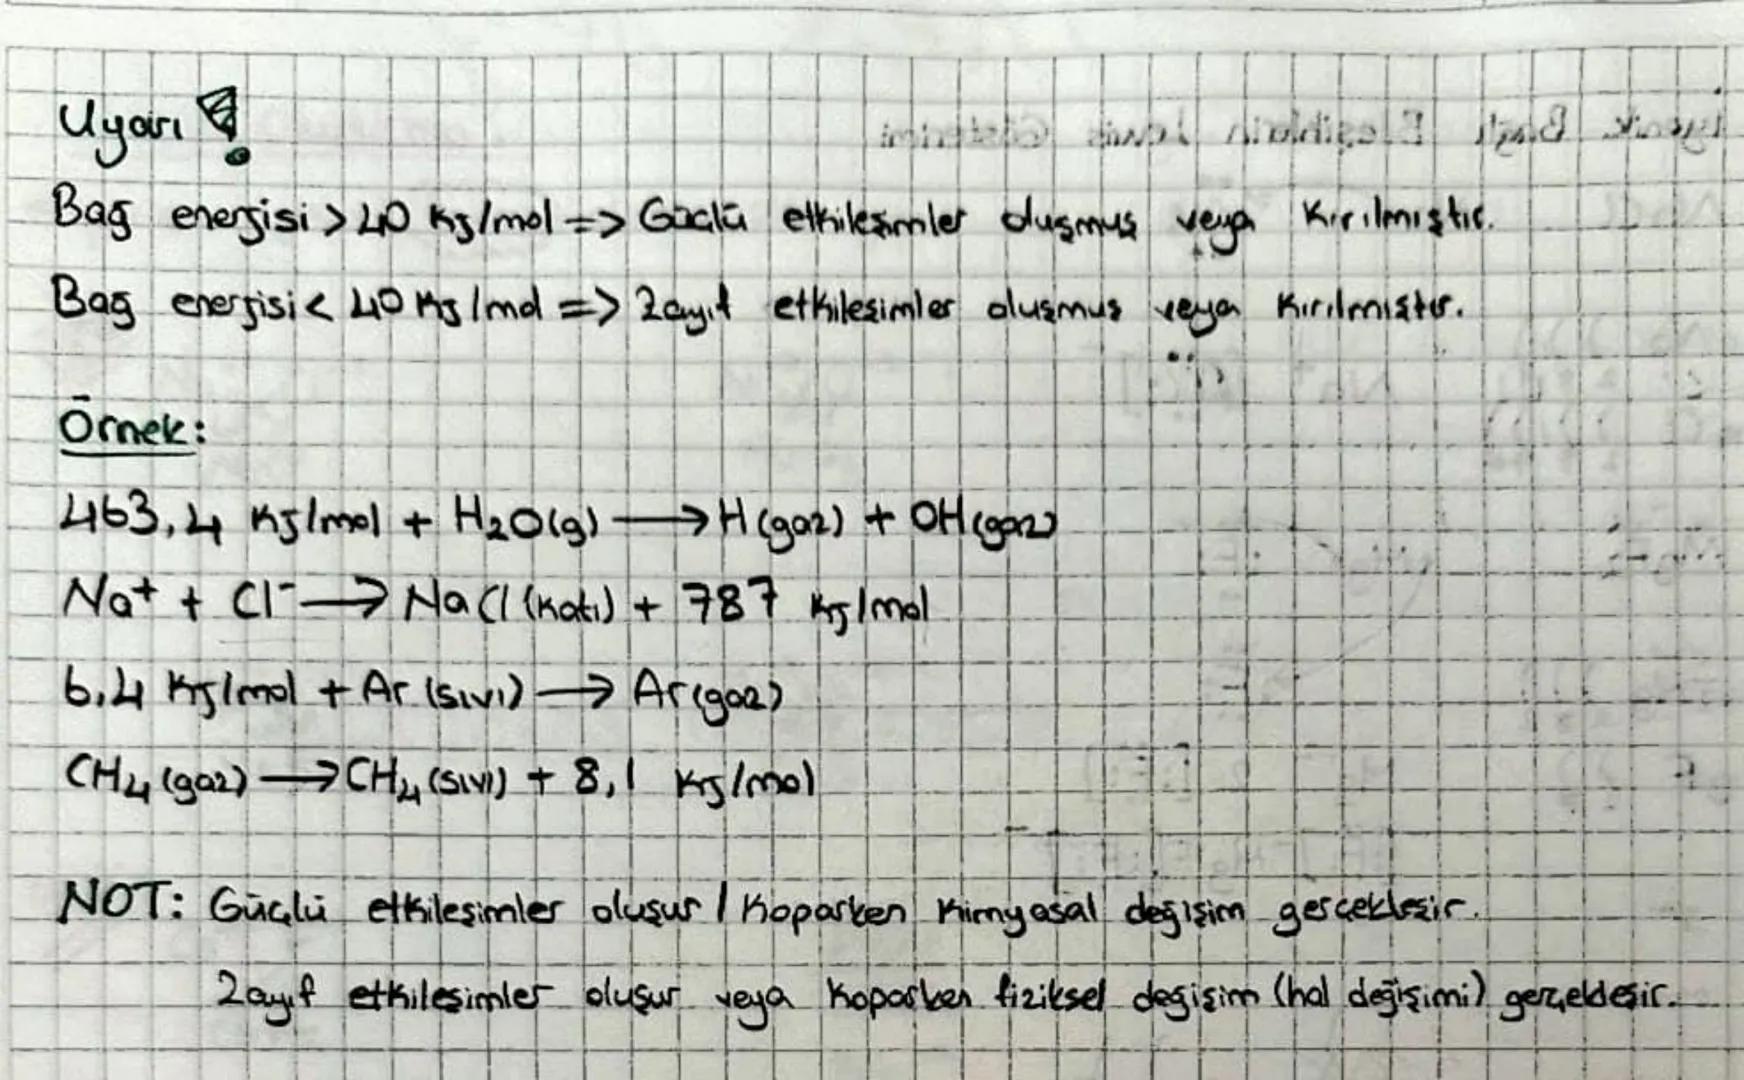 Uyarı!
Bağ enerjisi > 40 kj/mol => Güçlü etkileşimler oluşmuş veya kırılmıştır.
Bağ enerjisi < 40 kj/mol => Zayıf etkileşimler oluşmuş veya kırılmıştır.
Örnek:
463,4 kj/mol + H₂O(g) → H(gaz) + OH(gaz)
Na⁺ + Cl⁻ → NaCl (katı) + 787 kj/mol
6,4 kj/mol + Ar (sıvı) → Ar(gaz)
CH₄ (gaz) → CH₄ (sıvı) + 8,1 kj/mol
NOT: Güçlü etkileşimler oluşur / koparken kimyasal değişim gerçekleşir.
Zayıf etkileşimler oluşur veya koparken fiziksel değişim (hal değişimi) gerçekleşir.